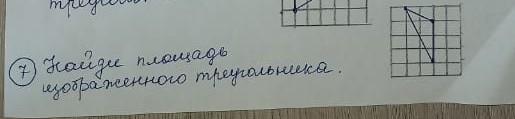 треуголь
⑦ Найди площадь
изображенного треугольника.